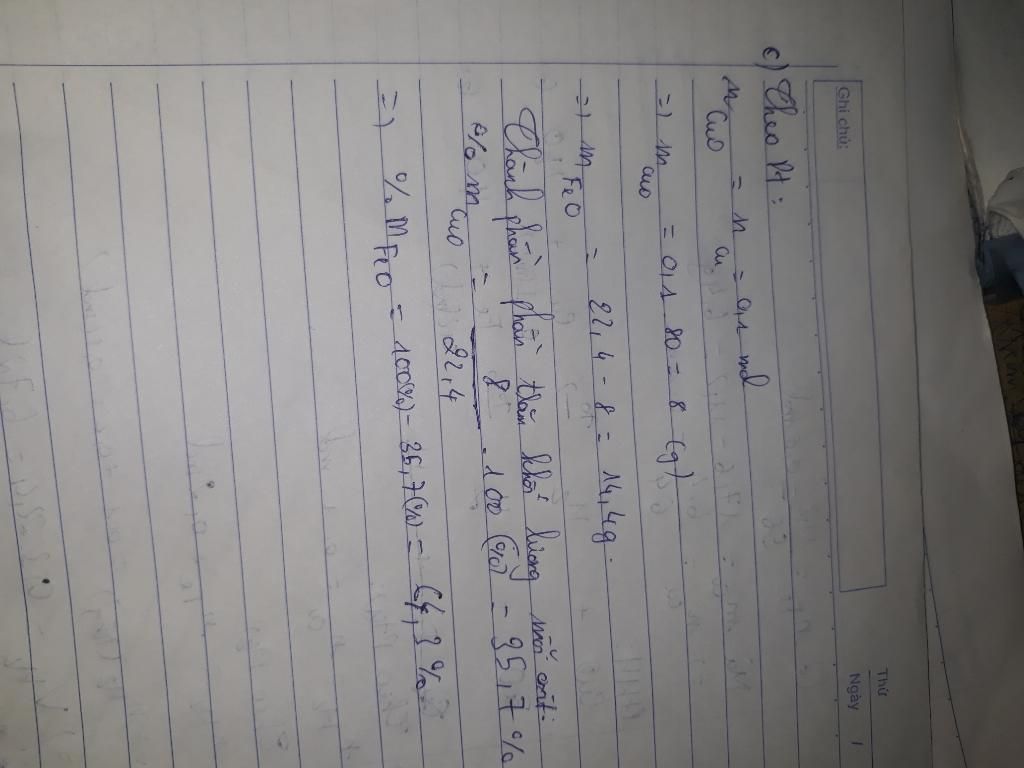 Ghi chú:
Thứ
Ngày /
c) Theo Pt:
n CuO = n Cu = 0,1 mol
=) m CuO = 0,1 . 80 = 8 (g)
=) m FeO = 22,4 - 8 = 14,4g.
Thành phần phần trăm khối lượng mỗi oxit:
% m CuO = 8 / 22,4 . 100 (%) = 35,7 %
=) % m FeO = 100(%) - 35,7(%) = 64,3 %